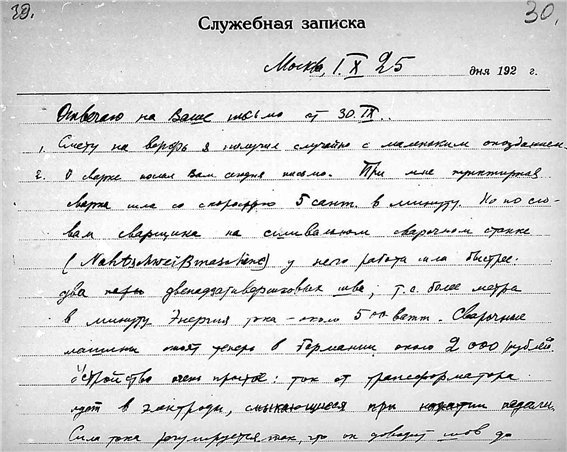 30.
30.
Служебная записка
Москва, 1. X 25 дня 192 г.
Отвечаю на Ваше письмо от 30.IX..
1. Смету на верфь я получил случайно с маленьким опозданием.
2. О сварке послал Вам сегодня письмо. При мне пунктирная
сварка шла со скоростью 5 сант. в минуту. Но по сло-
вам сварщика на сшивальном сварочном станке
(Nahtschweißmaschine) у него работа шла быстрее:
два двенадцативершковых шва, т.е. более метра
в минуту. Энергия тока – около 500 ватт. Сварочные
машины стоят теперь в Германии около 2000 рублей.
Устройство очень простое: ток от трансформатора
идет в электроды, смыкающиеся при нажатии педали.
Сила тока регулируется так, что он доводит шов до